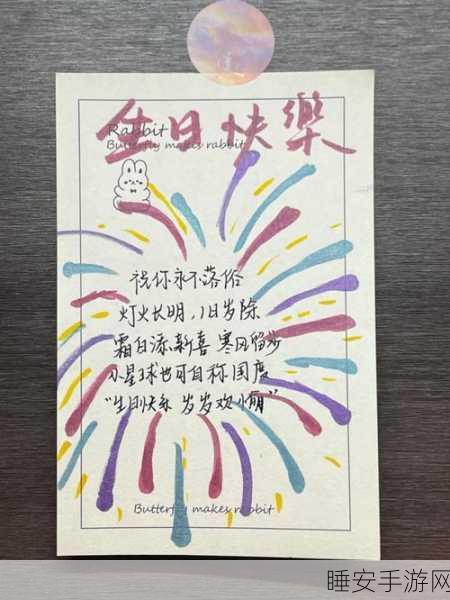 生日快樂
Rabbit
Butterfly makes rabbit
祝你永不落俗
灯火长明，旧岁除
霜白添新喜 寒风留步
小星球也可自称国度
“生日快乐 岁岁欢愉”
Butterfly makes rabbit
睡安手游网